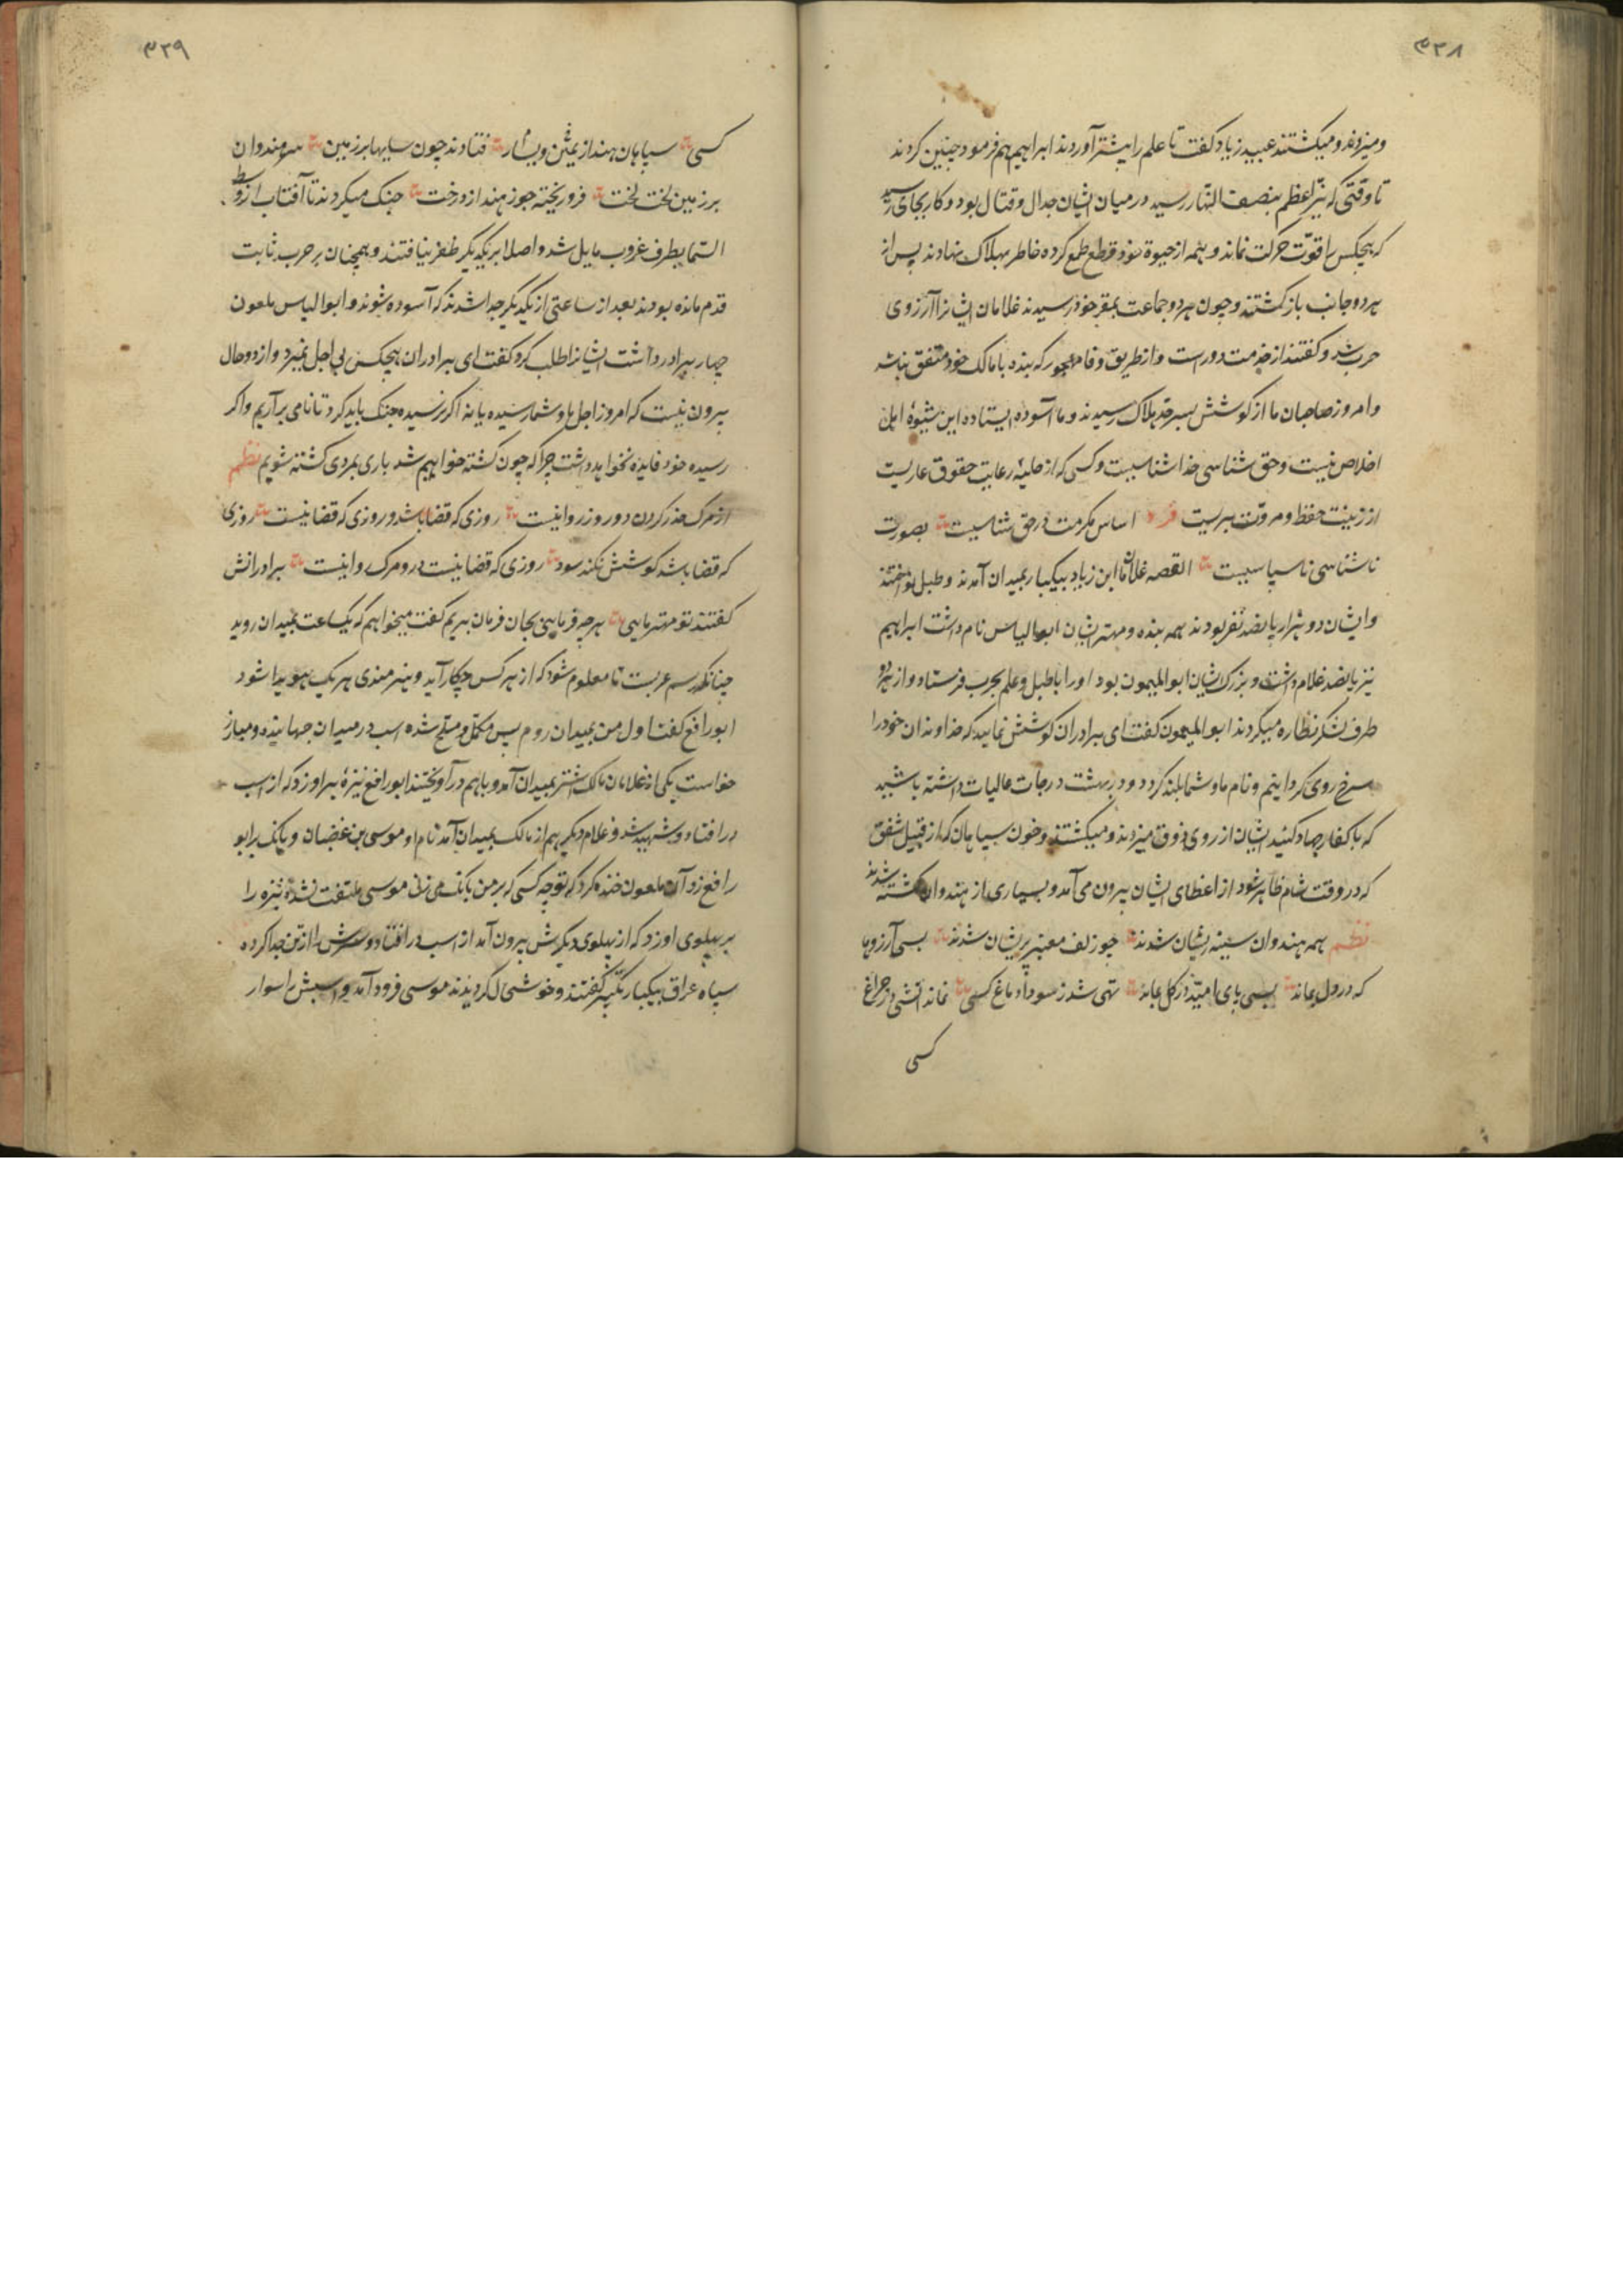 ۳۳۸
ومیزدند ومیکشتند عبید زیاد کفت تا علم را پیشتر آوردند ابراهیم هم فرمود چنین کردند
تا وقتی که نیّر اعظم بنصف النّهار رسید در میان ایشان جدال وقتال بود وکار بجای رسید
که هیچکس را قوّت حرکت نماند وهمه از حیوة خود قطع طمع کرده خاطر بهلاک بنهادند پس از
هر دو جانب باز کشتند وچون هر دو جماعت بمقر خود رسیدند غلامان ایشانرا آرزوی
حرب شد وکفتند از خدمت دورست واز طریق وفا مهجور که بنده با مالک خود متفق نباشد
وامروز صاحبان ما از کوشش بسرحد هلاک رسیدند وما آسوده ایستاده این شیوهٔ اهل
اخلاص نیست وحق شناسی خدا شناسیست وکسی که از حلیهٔ رعایت حقوق عاریست
از زینت حفظ ومروّت بریست فرد اساس مکرمت در حق شناسیست بصورت
ناشناسی ناسپاسیست القصه غلامان ابن زیاد بیکبار بمیدان آمدند وطبل نواختند
وایشان دو هزار پانصد نفر بودند همه بنده ومهتر ایشان ابوالیاس نام داشت ابراهیم
نیز پانصد غلام داشت وبزرک ایشان ابوالمیمون بود اورا با طبل وعلم بحرب فرستاد واز هر دو
طرف لشکر نظاره میکردند ابوالمیمون کفت ای برادران کوشش نمایید که خداوندان خودرا
سرخ روی کردانیم ونام ما وشما بلند کردد ودر بهشت درجات عالیات داشته باشید
که با کفار جهاد کنید ایشان از روی ذوق میزدند ومیکشتند وخون سیاهان که از قبیل شفق
که در وقت شام ظاهر شود از اعضای ایشان بیرون می آمد وبسیاری از هندوان کشته شدند
نظم همه هندوان سینه ریشان شدند چو زلف معنبر پریشان شدند بسی آرزوها
که در دل بماند بسی پای امید در کل بماند تهی شد ز سودا دماغ کسی نماند آتشی در چراغ
کسی
۳۳۹
کسی سپاهان هند از یمین ویسار فتادند چون سایها بر زمین سر هندوان
بر زمین لخت لخت فرو ریخته جوز هند از درخت جنک میکردند تا آفتاب از وسط
السّما بطرف غروب مایل شد واصلا بر یکدیکر ظفر نیافتند وهمچنان بر حرب ثابت
قدم مانده بودند بعد از ساعتی از یکدیکر جدا شدند که آسوده شوند وابوالیاس ملعون
چهار برادر داشت ایشانرا طلب کرد وکفت ای برادران هیچکس بی اجل نمیرد واز دو حال
بیرون نیست که امروز اجل ما وشما رسیده یا نه اکر نرسیده جنک باید کرد تا نامی بر آریم واکر
رسیده خود فایده نخواهد داشت چرا که چون کشته خواهیم شد باری بمردی کشته شویم نظم
از مرک حذر کردن دو روز روا نیست روزی که قضا باشد وروزی که قضا نیست روزی
که قضا باشد کوشش نکند سود روزی که قضا نیست درو مرک روا نیست برادرانش
کفتند تو مهتر مایی هر چه فرمایی بجان فرمان بریم کفت میخواهم که یکساعت بمیدان روید
چنانکه رسم عربست تا معلوم شود که از هر کس چکار آید وهنرمندی هر یک هویدا شود
ابورافع کفت اول من بمیدان روم پس مکمّل ومسلّح شده اسب در میدان جهانیده ومبارز
خواست یکی از غلامان مالک اشتر بمیدان آمد وباهم در آویختند ابورافع نیزهٔ بر او زد که از اسب
در افتاد وشهید شد وغلام دیکر هم از مالک بمیدان آمد نام او موسی بن غضبان وبانک بر ابو
رافع زد آن ملعون خنده کرد که تو چه کسی که بر من بانک می زنی موسی ملتفت نشده نیزه را
بر پهلوی او زد که از پهلوی دیکرش بیرون آمد از اسب در افتاد وسرش را از تن جدا کرده
سپاه عراق بیکبار تکبیر کفتند وخوشحال کردیدند موسی فرود آمد واسپش را سوار